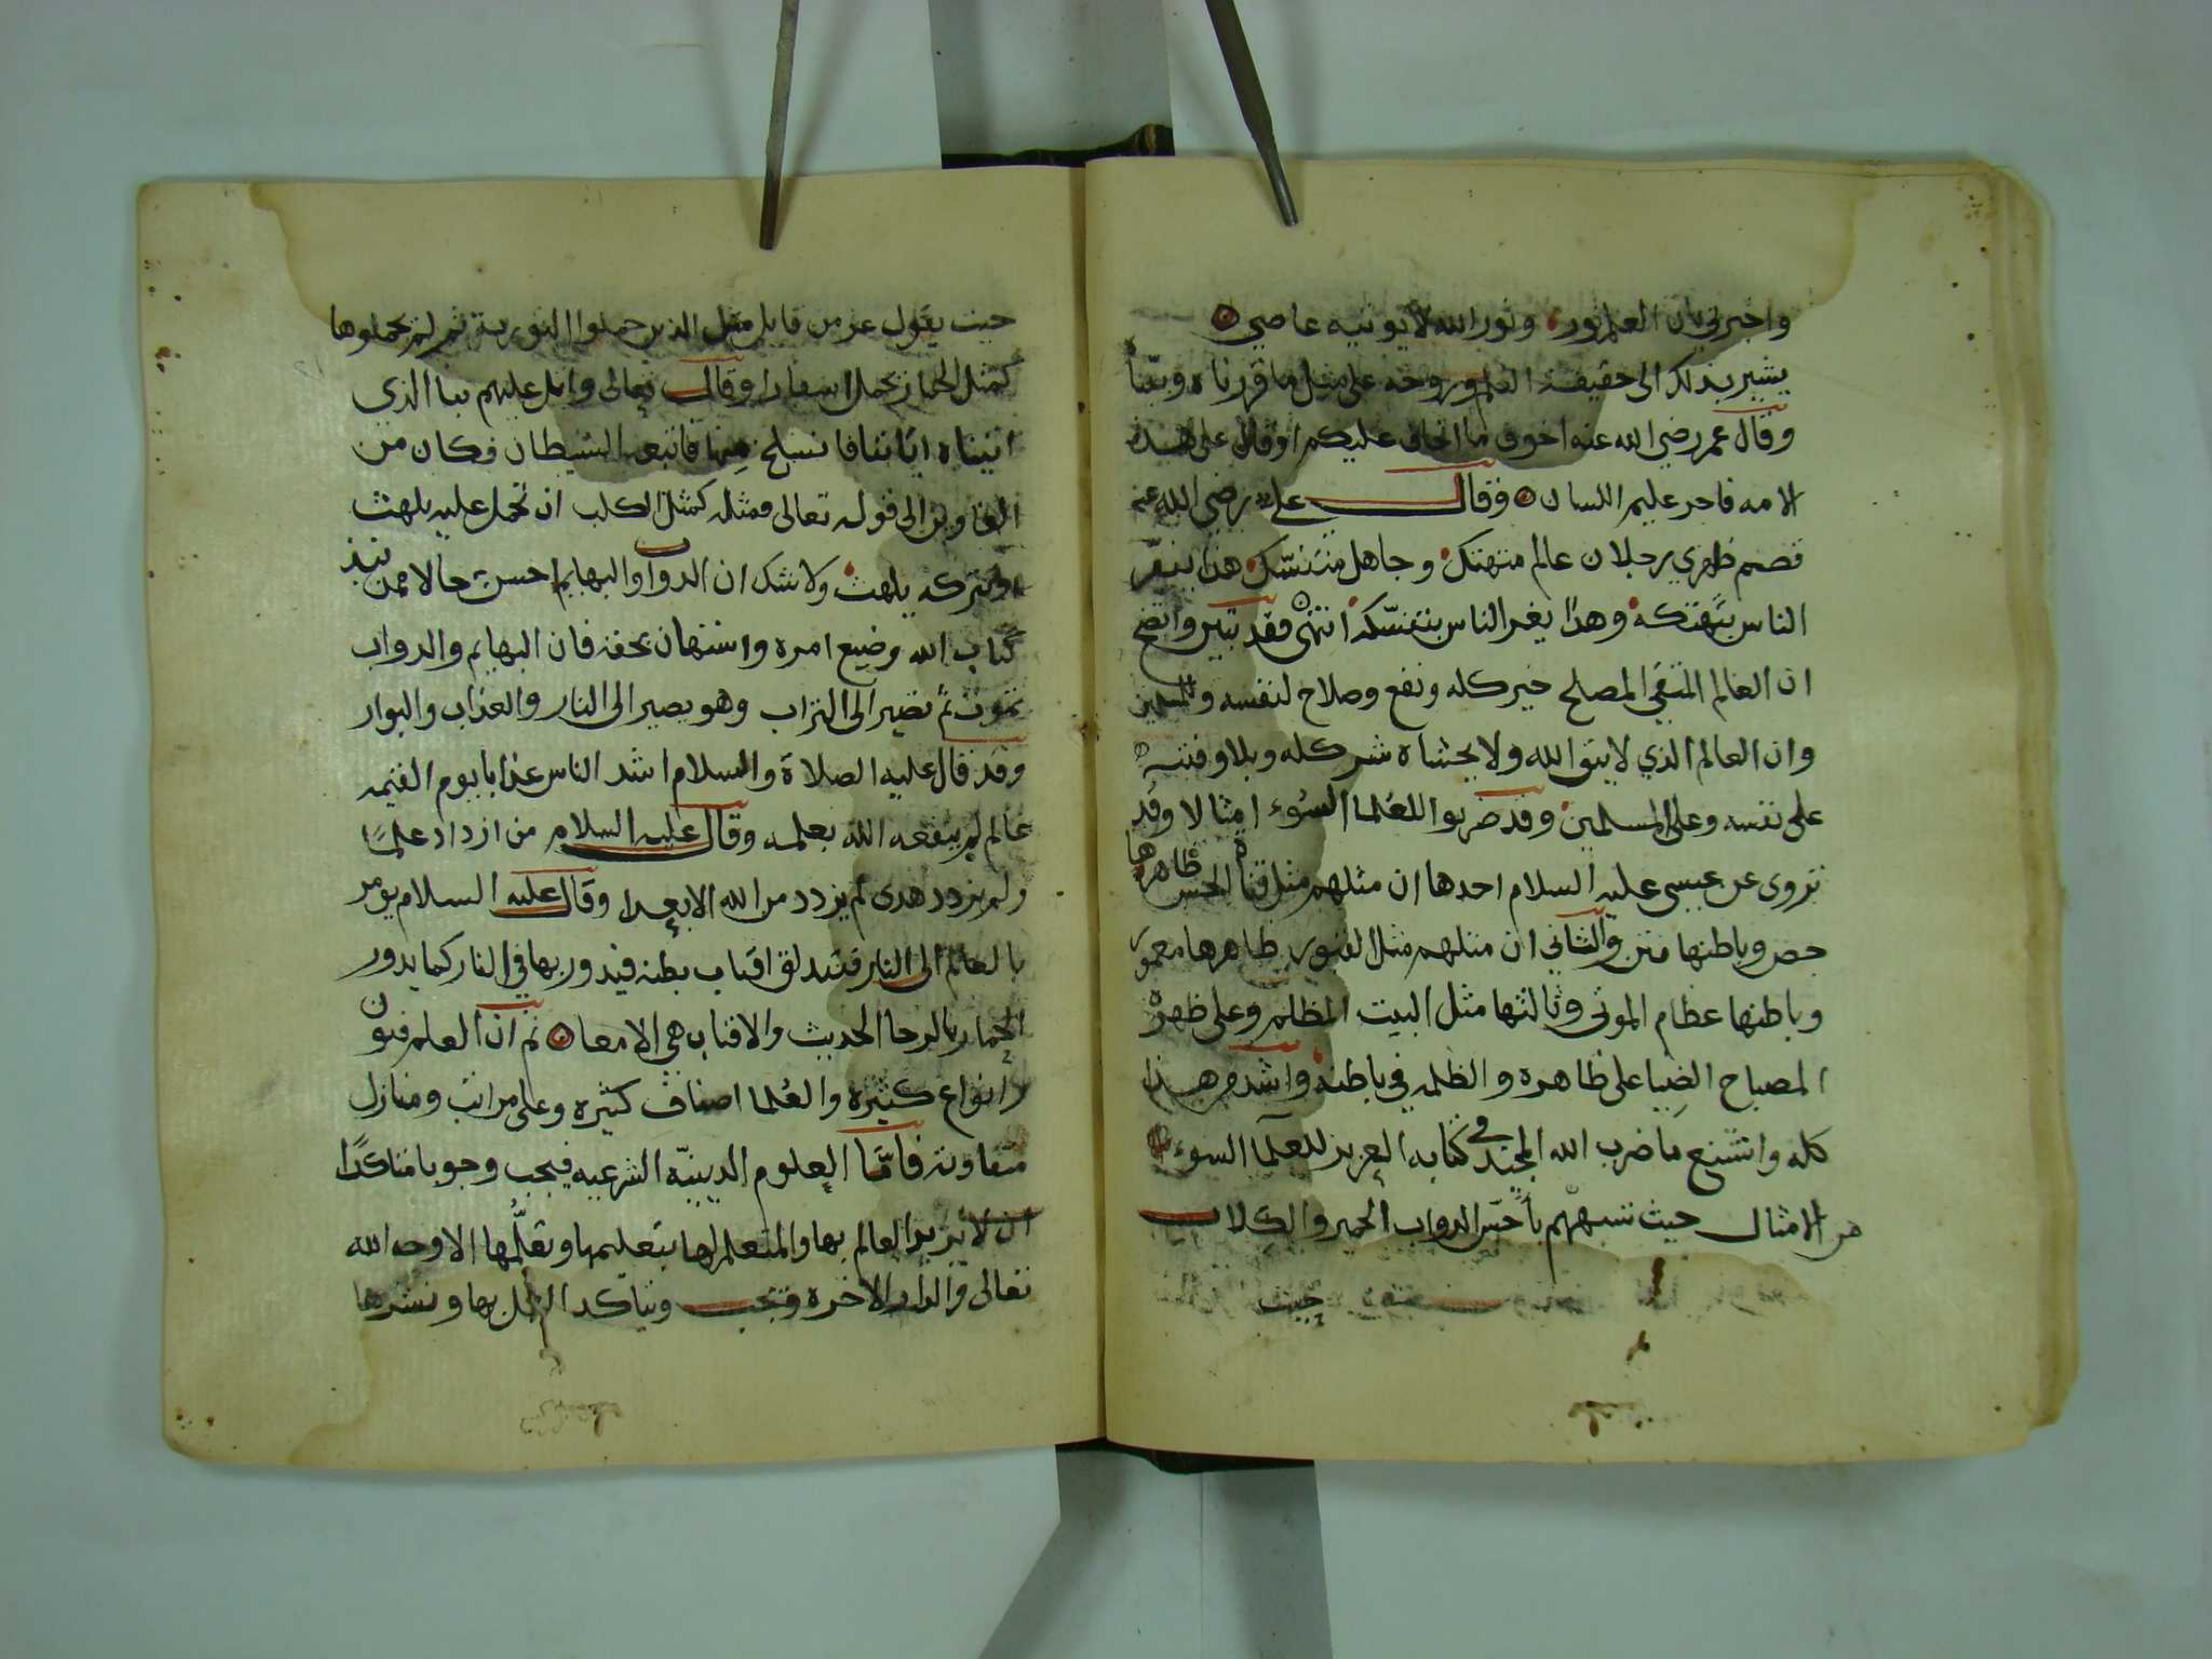 واخبرني بان العلم نور ونور الله لا يوتيه عاصي
يشير بذلك الى حقيقة العلم وروحه على مثل ما قررناه وبيّناه
وقال عمر رضي الله عنه اخوف ما اخاف عليكم اوقال على هذه
الامه فاجر عليم اللسان فقال علي رضي الله عنه
قصم ظهري رجلان عالم متهتك وجاهل متنسّك هذا ينفّر
الناس بتهتكه وهذا يغر الناس بتنسّكه انتهى فقد تبين واتضح
ان العالم المتقي المصلح خير كله ونفع وصلاح لنفسه وللمسلمين
وان العالم الذي لا يتق الله ولا يخشاه شر كله وبلا وفتنه
على نفسه وعلى المسلمين وقد ضربوا للعلما السوء امثالا وقد
تروى عن عيسى عليه السلام احدها ان مثلهم مثل قناة الحش ظاهرها
جص وباطنها متن والثاني ان مثلهم مثل القبور ظاهرها معمور
وباطنها عظام الموتى وثالثها مثل البيت المظلم وعلى ظهره
المصباح الضيا على ظاهره والظلمه في باطنه واشد من هذا
كله واشنع ما ضرب الله المجيد في كتابه العزيز للعلما السوء
من الامثال حيث شبههم بأخس الدواب الحمير والكلاب
حيث
حيث يقول عز من قايل مثل الذين حملوا التورية ثم لم يحملوها
كمثل الحمار يحمل اسفارا وقال تعالى واتل عليهم نبا الذي
اتيناه اياتنا فانسلخ منها فاتبعه الشيطان فكان من
الغاوين الى قوله تعالى فمثله كمثل الكلب ان تحمل عليه يلهث
او تتركه يلهث ولا شك ان الدواب والبهايم احسن حالا ممن نبذ
كتاب الله وضيع امره واستهان بحقه فان البهايم والدواب
تموت ثم تصير الى التراب وهو يصير الى النار والعذاب والبوار
وقد قال عليه الصلاة والسلام اشد الناس عذابا يوم القيمه
عالم لم ينفعه الله بعلمه وقال عليه السلام من ازداد علمًا
ولم يزدد هدى لم يزدد من الله الا بعدا وقال عليه السلام يومر
بالعالم الى النار فتندلق اقتاب بطنه فيدور بها في النار كما يدور
الحمار بالرحا الحديث والاقتاب هي الامعا ثم ان العلم فنون
وانواع كثيرة والعلما اصناف كثيره وعلى مراتب ومنازل
متفاوته فامّا العلوم الدينيّه الشرعيه فيجب وجوبا متاكدًا
ان لا يريد العالم بها والمتعلم لها بتعليمها وتعلّمها الا وجه الله
تعالى والدار الاخرة وتجب ويتاكد العمل بها ونشرها